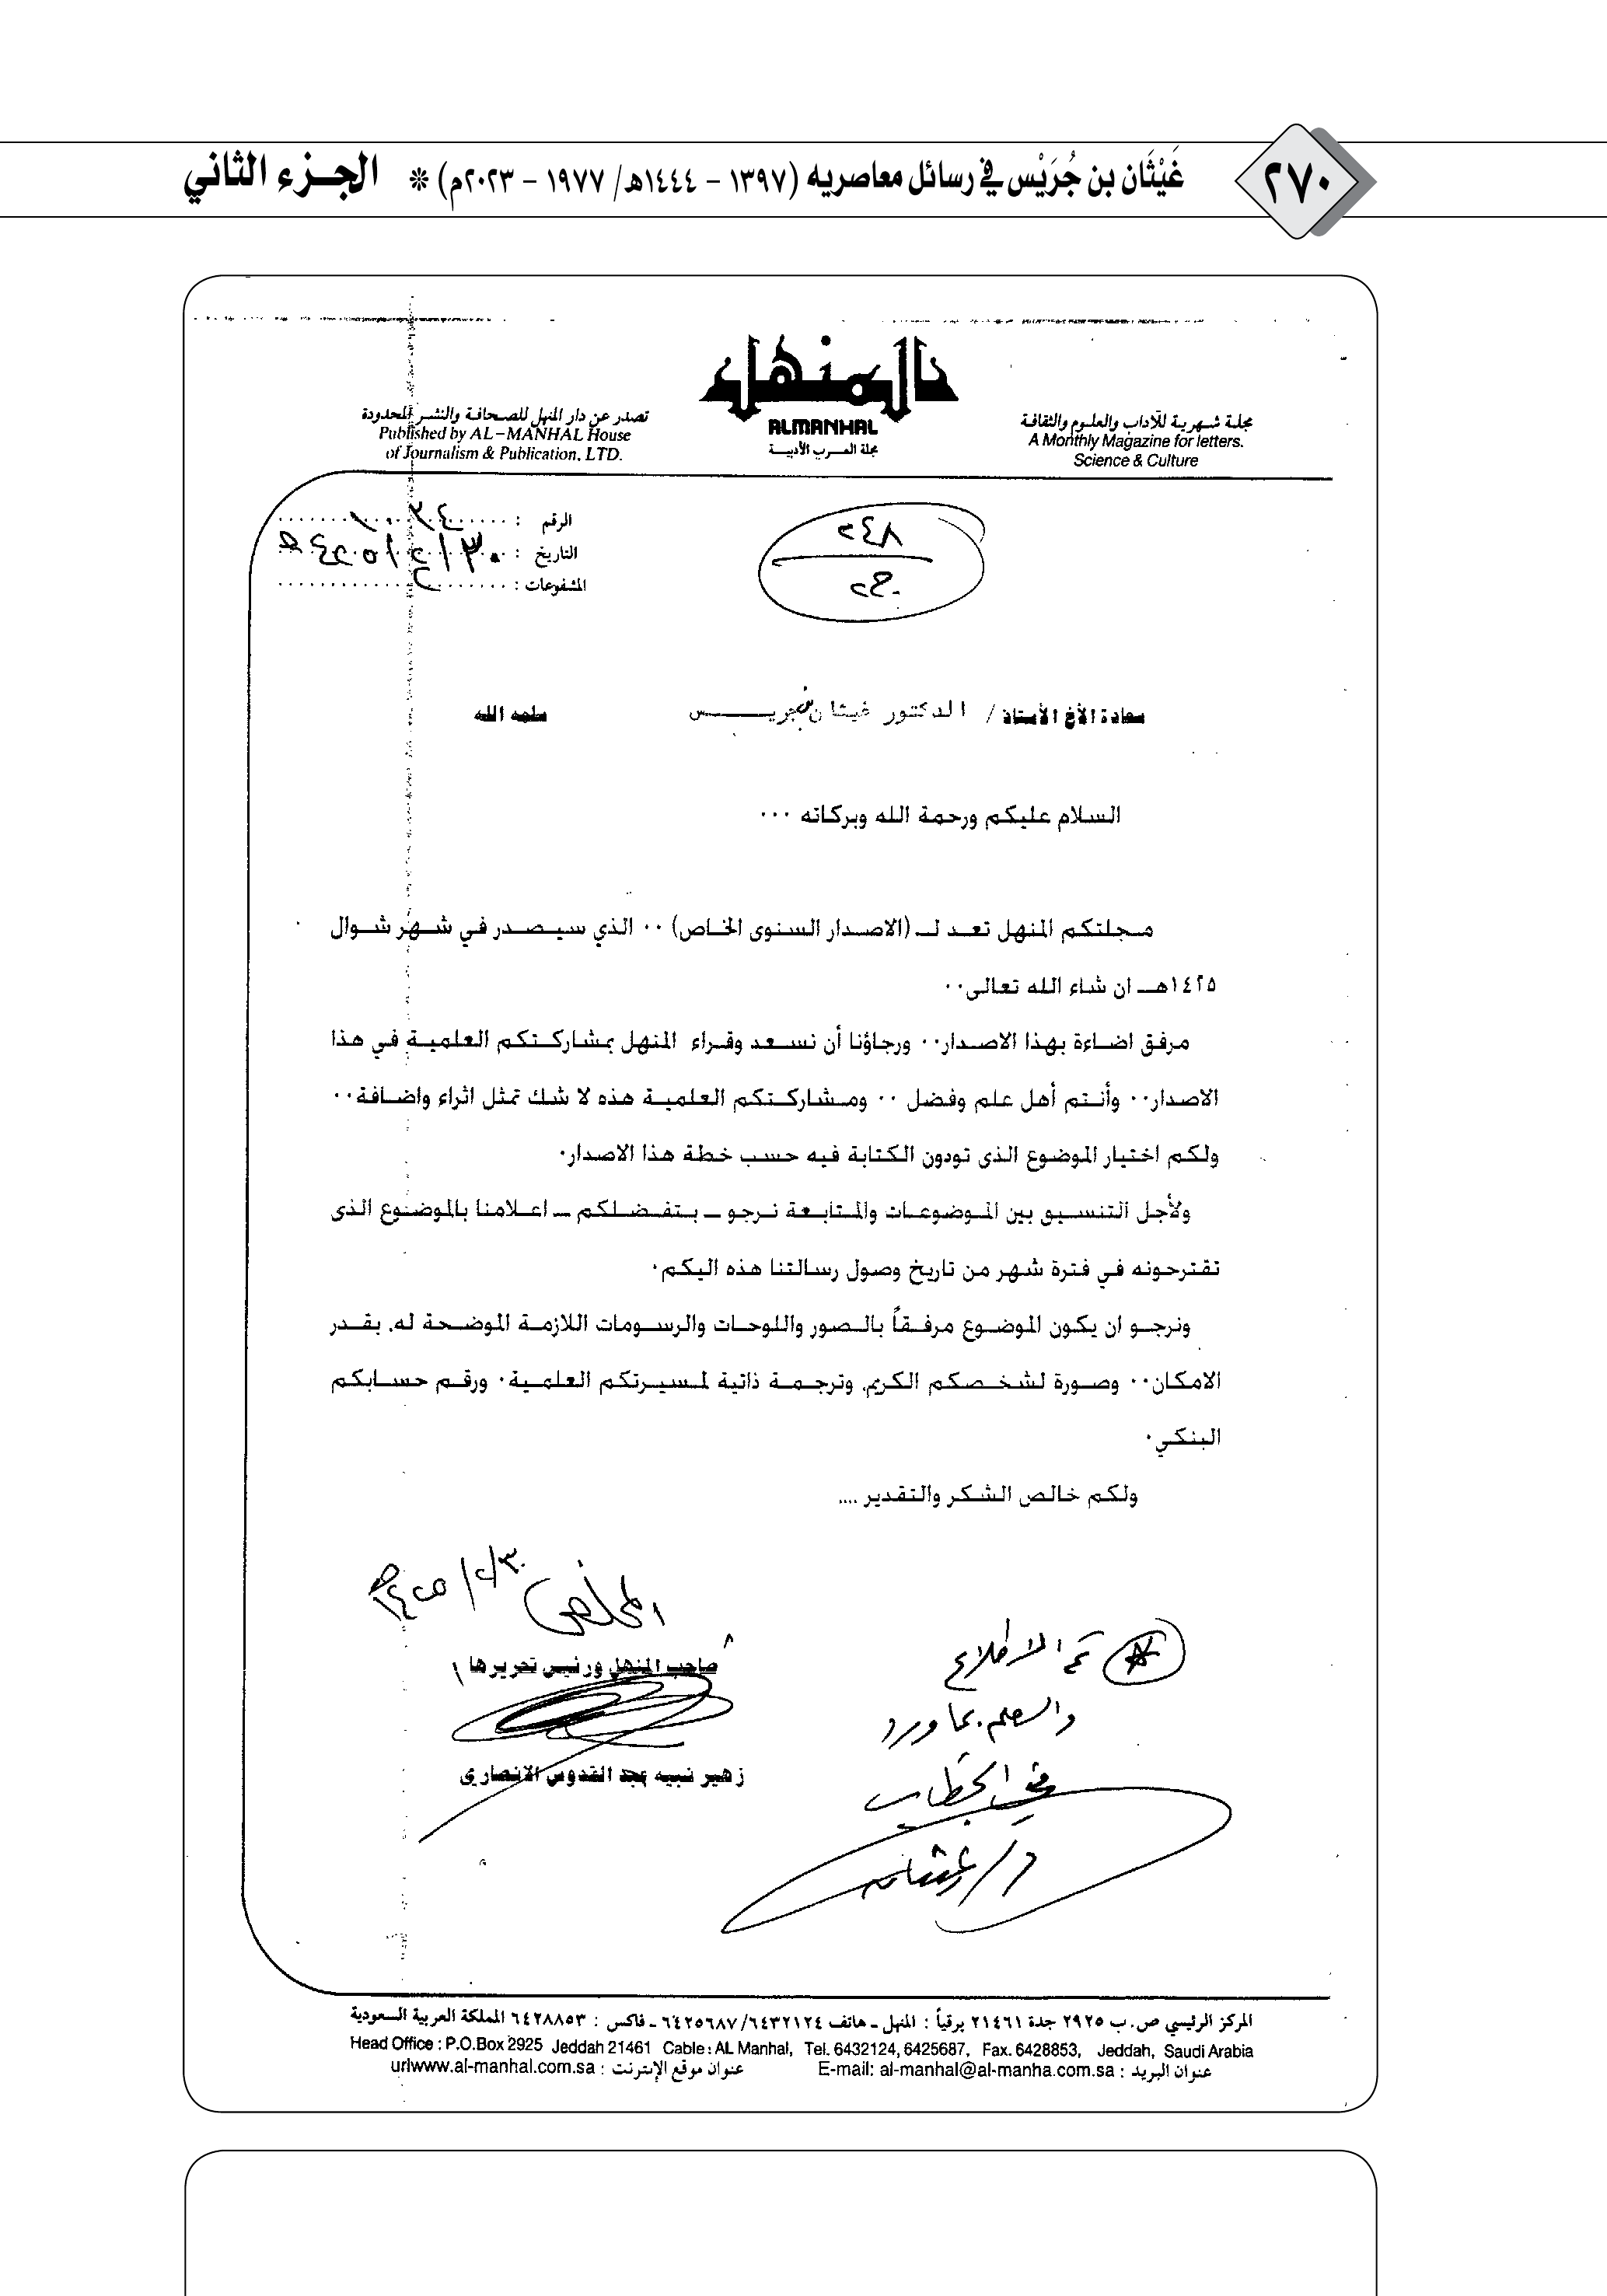 ٢٧٠
غَيْثَان بن جُرَيْس في رسائل معاصريه (١٣٩٧ - ١٤٤٤هـ/ ١٩٧٧ - ٢٠٢٣م) * الجـزء الثاني
المنهل
ALMANHAL
مجلة العـرب الأدبيـة
مجلة شهرية للآداب والعلوم والثقافة
A Monthly Magazine for letters.
Science & Culture
تصدر عن دار المنهل للصحافة والنشر المحدودة
Published by AL-MANHAL House
of Journalism & Publication. LTD.
الرقم :
التاريخ :
المشفوعات :
٢٤٨
سعادة الأخ الأستاذ / الدكتور غيثان بن جريـــس سلمه الله
السلام عليكم ورحمة الله وبركاته ...
مجلتكم المنهل تعد لـ (الاصدار السنوى الخاص) .. الذي سيصدر في شهر شوال
١٤٢٥هـ ان شاء الله تعالى..
مرفق اضاءة بهذا الاصدار.. ورجاؤنا أن نسعد وقراء المنهل بمشاركتكم العلمية في هذا
الاصدار.. وأنتم أهل علم وفضل .. ومشاركتكم العلمية هذه لا شك تمثل اثراء واضافة..
ولكم اختيار الموضوع الذى تودون الكتابة فيه حسب خطة هذا الاصدار.
ولأجل التنسيق بين الموضوعات والمتابعة نرجو ـ بتفضلكم ـ اعلامنا بالموضوع الذى
تقترحونه في فترة شهر من تاريخ وصول رسالتنا هذه اليكم.
ونرجو ان يكون الموضوع مرفقاً بالصور واللوحات والرسومات اللازمة الموضحة له، بقدر
الامكان.. وصورة لشخصكم الكريم، وترجمة ذاتية لمسيرتكم العلمية. ورقم حسابكم
البنكي.
ولكم خالص الشكر والتقدير ....
المخلص
صاحب المنهل ورئيس تحريرها
زهير نبيه عبد القدوس الانصارى
تم الاطلاع
والعلم بما ورد
في الخطاب
د/ غيثان
المركز الرئيسي ص.ب ٢٩٢٥ جدة ٢١٤٦١ برقياً : المنهل ـ هاتف ٦٤٣٢١٢٤/ ٦٤٢٥٦٨٧ ـ فاكس : ٦٤٢٨٨٥٣ المملكة العربية السعودية
Head Office : P.O.Box 2925 Jeddah 21461 Cable : AL Manhal, Tel. 6432124, 6425687, Fax. 6428853, Jeddah, Saudi Arabia
عنوان البريد : E-mail: al-manhal@al-manha.com.sa عنوان موقع الإنترنت : urlwww.al-manhal.com.sa